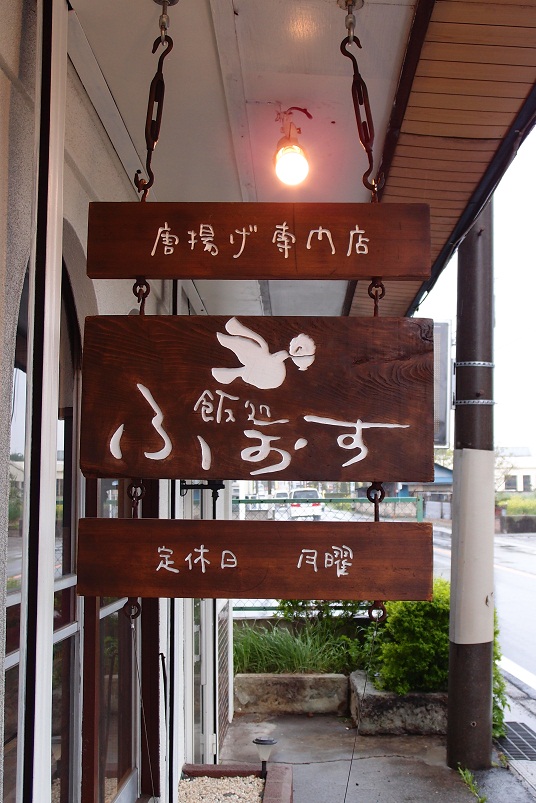 唐揚げ専門店
飯処
ふぉーす
定休日 月曜